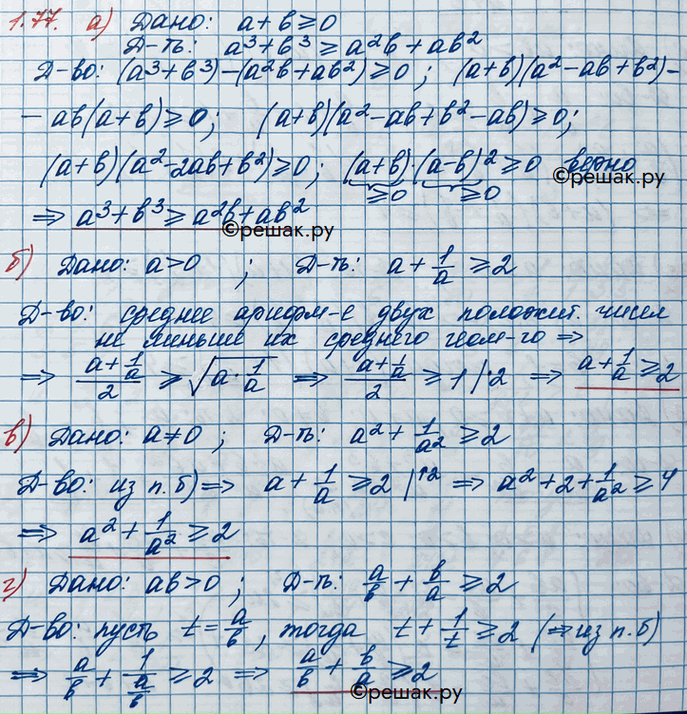 1.77. а) Дано: a+b≥0
Д-ть: a³+b³≥a²b+ab²
Д-во: (a³+b³)-(a²b+ab²)≥0; (a+b)(a²-ab+b²)-
-ab(a+b)≥0; (a+b)(a²-ab+b²-ab)≥0;
(a+b)(a²-2ab+b²)≥0; (a+b)·(a-b)²≥0 верно
≥0 ≥0
©решак.ру
⇒ a³+b³≥a²b+ab²
©решак.ру
б) Дано: a>0 ; Д-ть: a+1/a≥2
Д-во: среднее арифм-е двух положит. чисел
не меньше их среднего геом-го ⇒
⇒ (a+1/a)/2 ≥ √(a·1/a) ⇒ (a+1/a)/2 ≥ 1 |·2 ⇒ a+1/a≥2
в) Дано: a≠0 ; Д-ть: a²+1/a²≥2
Д-во: из п. б) ⇒ a+1/a≥2 |↑2 ⇒ a²+2+1/a²≥4
⇒ a²+1/a²≥2
г) Дано: ab>0 ; Д-ть: a/b+b/a≥2
Д-во: пусть t=a/b, тогда t+1/t≥2 (⇒из п.б)
⇒ a/b+1/(a/b)≥2 ⇒ a/b+b/a≥2
©решак.ру